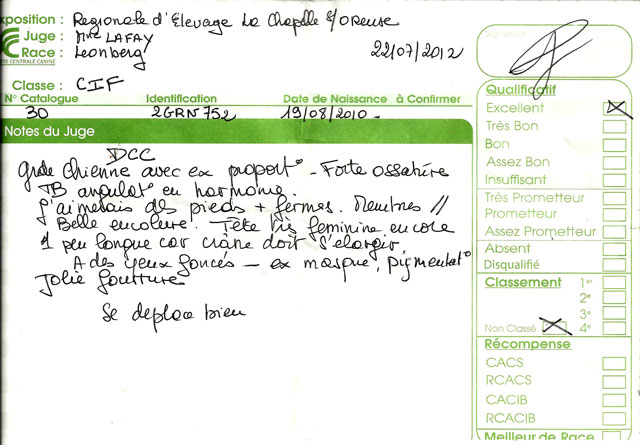 xposition : Regionale d'Elevage La Chapelle S/OREUSE
Juge : Mme LAFAY
Race : Leonberg
TE CENTRALE CANINE
22/07/2012
Classe : CIF
N° Catalogue Identification Date de Naissance à Confirmer
30 2GRN752 19/08/2010
Notes du Juge
DCC
Gde Chienne avec ex proport° - Forte ossature
TB angulat° en harmonie.
J'aimerais des pieds + fermes. Membres //
Belle encolure. Tête très feminine encore
1 peu longue car crâne doit s'elargir,
A des yeux foncés - ex masque, pigmentat°
Jolie fourrure
Se deplace bien
Signature
Qualificatif
Excellent
Très Bon
Bon
Assez Bon
Insuffisant
Très Prometteur
Prometteur
Assez Prometteur
Absent
Disqualifié
Classement 1er
2e
3e
Non Classé 4e
Récompense
CACS
RCACS
CACIB
RCACIB
Meilleur de Race